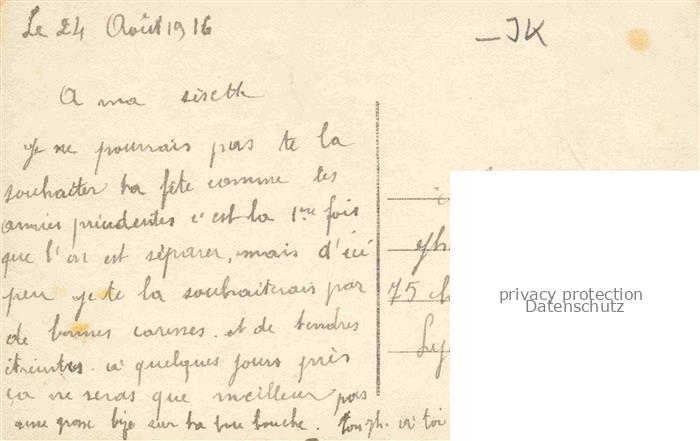 Le 24 Août 1916
JK
A ma sèsette
Je ne pourrais pas te la
souhaiter ta fête comme les
années précédentes c'est la 1ère fois
que l'on est séparer, mais d'ici
peu je te la souhaiterais par
de bonnes caresses. et de tendres
étreintes. à quelques jours près
ça ne seras que meilleur pas
une grosse bise sur ta bouche. à toi
75
privacy protection
Datenschutz